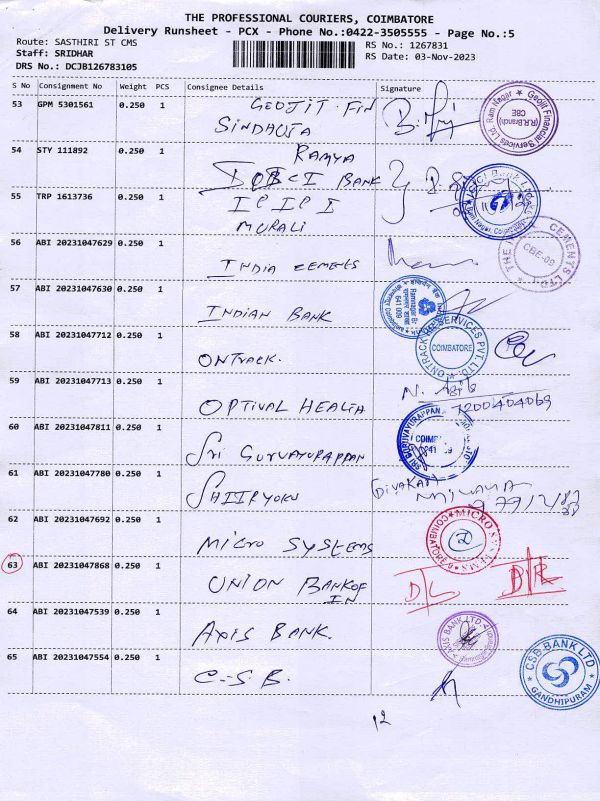 THE PROFESSIONAL COURIERS, COIMBATORE
Delivery Runsheet - PCX - Phone No.:0422-3505555 - Page No.:5
Route: SASTHIRI ST CMS
RS No.: 1267831
Staff: SRIDHAR
RS Date: 03-Nov-2023
DRS No.: DCJB126783105
S No Consignment No Weight PCS Consignee Details Signature
53 GPM 5301561 0.250 1 GEOJIT FIN
SINDHUJA
Geojit Financial Services Ltd. Ram Nagar
(R.R.Branch)
CBE
54 STY 111892 0.250 1 RAMYA
BANK
55 TRP 1613736 0.250 1
MURALI
56 ABI 20231047629 0.250 1
INDIA CEMENTS
CEMENTS LTD
CBE-09
57 ABI 20231047630 0.250 1
INDIAN BANK
641 009
58 ABI 20231047712 0.250 1
ONTRACK.
ONTRACK SERVICES PVT. LTD.
COIMBATORE
59 ABI 20231047713 0.250 1
OPTIVAL HEALTH
7200404069
60 ABI 20231047811 0.250 1
SRI GURUVAYURAPPAN
SRI GURUVAYURAPPAN
61 ABI 20231047780 0.250 1
62 ABI 20231047692 0.250 1
MICRO SYSTEMS
MICRO SYSTEMS
COIMBATORE
63 ABI 20231047868 0.250 1
UNION BANK OF
IN
D/L
64 ABI 20231047539 0.250 1
AXIS BANK.
AXIS BANK LTD
65 ABI 20231047554 0.250 1
C.S.B.
CSB BANK LTD
GANDHIPURAM
12